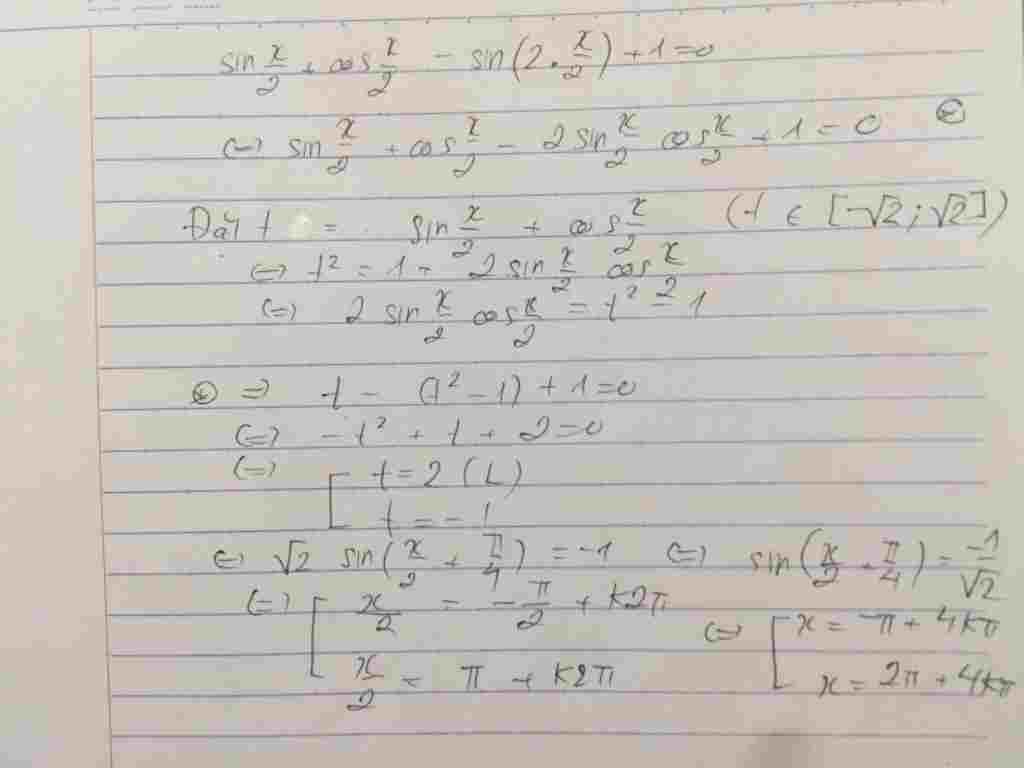 sin x/2 + cos x/2 - sin(2.x/2) + 1 = 0
(=) sin x/2 + cos x/2 - 2 sin x/2 cos x/2 + 1 = 0 (*)
Đặt t = sin x/2 + cos x/2 (t ∈ [-√2; √2])
(=) t² = 1 + 2 sin x/2 cos x/2
(=) 2 sin x/2 cos x/2 = t² - 1
(*) => t - (t² - 1) + 1 = 0
(=) -t² + t + 2 = 0
(=) [ t = 2 (L)
t = -1
(=) √2 sin(x/2 + π/4) = -1 (=) sin(x/2 + π/4) = -1/√2
(=) [ x/2 = -π/2 + k2π
x/2 = π + k2π
(=) [ x = -π + 4kπ
x = 2π + 4kπ